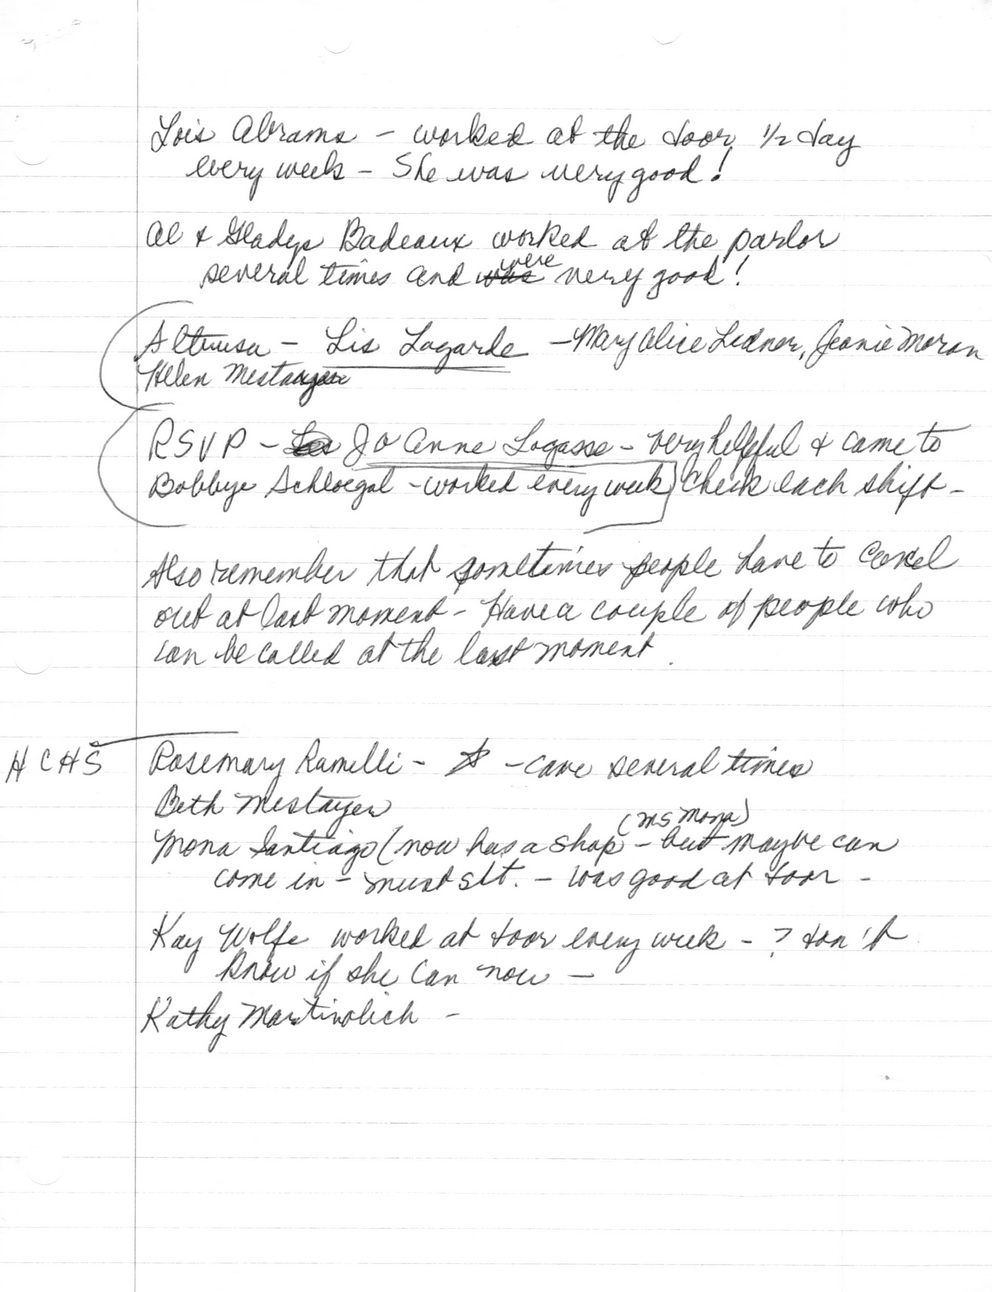 Lois Abrams - worked at the door 1/2 day
every week - She was very good!
Al & Gladys Badeaux worked at the parlor
several times and was were very good!
Altrusa - Lis Lagarde - Mary Alice Ledner, Jeanie Moran
Helen Mestayer
RSVP - Jo Anne Logasse - very helpful & came to
Bobbye Schloegal - worked every week) check each shift -
Also remember that sometimes people have to cancel
out at last moment - Have a couple of people who
can be called at the last moment.
HCHS Rosemary Ramelli - - came several times
Beth Mestayer
(Ms Mona)
Mona Santiago (now has a shop - but maybe can
come in - must sit. - was good at door -
Kay Wolfe worked at door every week - ? don't
know if she can now -
Kathy Martinolich -